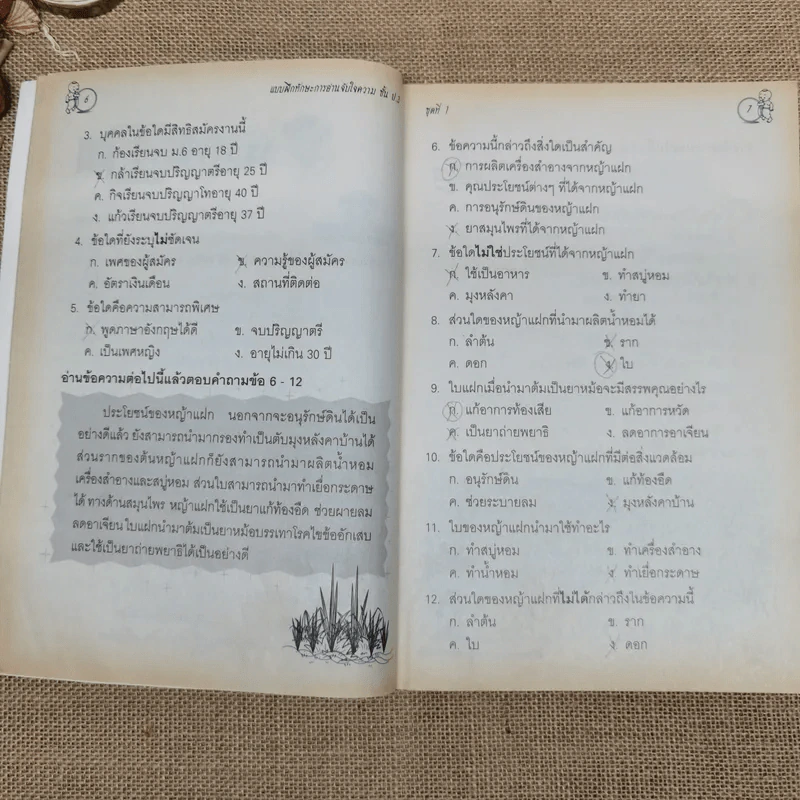 6
แบบฝึกทักษะการอ่านจับใจความ ชั้น ป.3
3. บุคคลในข้อใดมีสิทธิสมัครงานนี้
ก. ก้องเรียนจบ ม.6 อายุ 18 ปี
ข. กล้าเรียนจบปริญญาตรีอายุ 25 ปี
ค. กิจเรียนจบปริญญาโทอายุ 40 ปี
ง. แก้วเรียนจบปริญญาตรีอายุ 37 ปี
4. ข้อใดที่ยังระบุไม่ชัดเจน
ก. เพศของผู้สมัคร ข. ความรู้ของผู้สมัคร
ค. อัตราเงินเดือน ง. สถานที่ติดต่อ
5. ข้อใดคือความสามารถพิเศษ
ก. พูดภาษาอังกฤษได้ดี ข. จบปริญญาตรี
ค. เป็นเพศหญิง ง. อายุไม่เกิน 30 ปี
อ่านข้อความต่อไปนี้แล้วตอบคำถามข้อ 6 - 12
ประโยชน์ของหญ้าแฝก นอกจากจะอนุรักษ์ดินได้เป็น
อย่างดีแล้ว ยังสามารถนำมากรองทำเป็นตับมุงหลังคาบ้านได้
ส่วนรากของต้นหญ้าแฝกก็ยังสามารถนำมาผลิตน้ำหอม
เครื่องสำอางและสบู่หอม ส่วนใบสามารถนำมาทำเยื่อกระดาษ
ได้ ทางด้านสมุนไพร หญ้าแฝกใช้เป็นยาแก้ท้องอืด ช่วยผายลม
ลดอาเจียน ใบแฝกนำมาต้มเป็นยาหม้อบรรเทาโรคไขข้ออักเสบ
และใช้เป็นยาถ่ายพยาธิได้เป็นอย่างดี
ชุดที่ 1
7
6. ข้อความนี้กล่าวถึงสิ่งใดเป็นสำคัญ
ก. การผลิตเครื่องสำอางจากหญ้าแฝก
ข. คุณประโยชน์ต่างๆ ที่ได้จากหญ้าแฝก
ค. การอนุรักษ์ดินของหญ้าแฝก
ง. ยาสมุนไพรที่ได้จากหญ้าแฝก
7. ข้อใดไม่ใช่ประโยชน์ที่ได้จากหญ้าแฝก
ก. ใช้เป็นอาหาร ข. ทำสบู่หอม
ค. มุงหลังคา ง. ทำยา
8. ส่วนใดของหญ้าแฝกที่นำมาผลิตน้ำหอมได้
ก. ลำต้น ข. ราก
ค. ดอก ง. ใบ
9. ใบแฝกเมื่อนำมาต้มเป็นยาหม้อจะมีสรรพคุณอย่างไร
ก. แก้อาการท้องเสีย ข. แก้อาการหวัด
ค. เป็นยาถ่ายพยาธิ ง. ลดอาการอาเจียน
10. ข้อใดคือประโยชน์ของหญ้าแฝกที่มีต่อสิ่งแวดล้อม
ก. อนุรักษ์ดิน ข. แก้ท้องอืด
ค. ช่วยระบายลม ง. มุงหลังคาบ้าน
11. ใบของหญ้าแฝกนำมาใช้ทำอะไร
ก. ทำสบู่หอม ข. ทำเครื่องสำอาง
ค. ทำน้ำหอม ง. ทำเยื่อกระดาษ
12. ส่วนใดของหญ้าแฝกที่ไม่ได้กล่าวถึงในข้อความนี้
ก. ลำต้น ข. ราก
ค. ใบ ง. ดอก